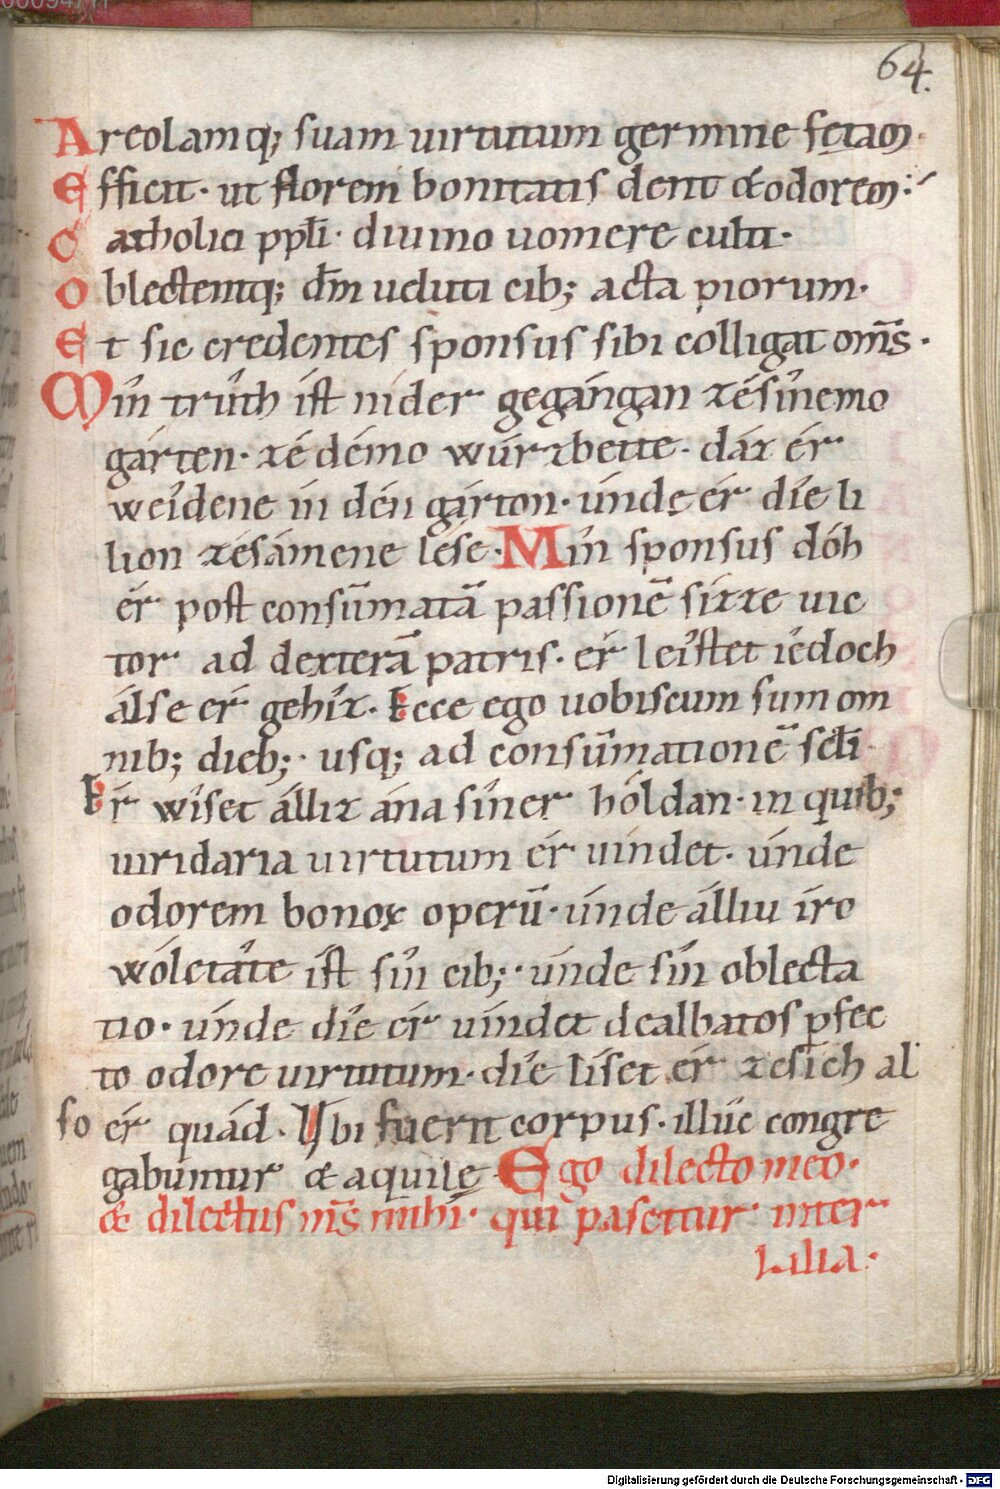 64.
Areolamq; suam uirtutum germine fętam.
Efficit· ut florem bonitatis dent & odorem:
Catholici ppl̄i· diuino uomere culti·
Oblectentq; dm̄ ueluti cib; acta piorum·
Et sic credentes sponsus sibi colligat om̄s·
Mín trûth ist níder gegángan zésînemo
gárten· zé démo wúrzbette· dáz ér
weîdene in dén gárton· únde ér díe li
lion zésámene lése· Mín sponsus dóh
ér post consūmatā passionē sizze uic
tor ad dexterā patris· ér leîstet iédoch
álse ér gehíz· Ecce ego uobiscum sum om
nib; dieb;· usq; ad consūmationē scl̄i·
Er wîset álliz ána sîner hóldan· in quib;
uiridaria uirtutum ér uindet· únde
odorem bonoꝝ operū· únde álliu íro
wóletâte ist sîn cib;· únde sîn oblecta
tio· únde díe ér uindet dealbatos ꝑfec
to odore uirtutum· díe líset ér zesích al
so ér quád· Vbi fuerit corpus· illúc congre
gabuntur & aquilę· Ego dilecto meo·
& dilectus m̄s mihi· qui pascitur inter
Lilia·
Digitalisierung gefördert durch die Deutsche Forschungsgemeinschaft - DFG